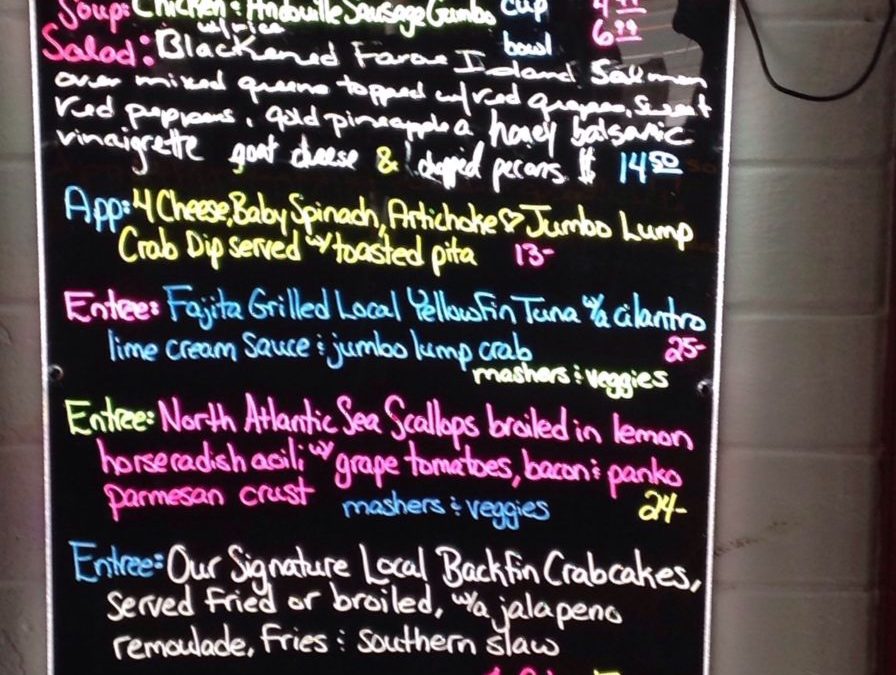 Soup: Chicken & Andouille Sausage Gumbo cup 4.99
w/rice bowl 6.99
Salad: Blackened Faroe Island Salmon
over mixed greens topped w/red grapes, sweet
red peppers, gold pineapple a honey balsamic
vinaigrette goat cheese & chopped pecans $ 14.50
App: 4 Cheese, Baby Spinach, Artichoke ♡ Jumbo Lump
Crab Dip served w/toasted pita 13-
Entree: Fajita Grilled Local Yellowfin Tuna w/a cilantro
lime cream sauce & jumbo lump crab 25-
mashers & veggies
Entree: North Atlantic Sea Scallops broiled in lemon
horseradish aoili w/ grape tomatoes, bacon & panko
parmesan crust mashers & veggies 24-
Entree: Our Signature Local Backfin Crabcakes,
served fried or broiled, w/a jalapeno
remoulade, fries & southern slaw